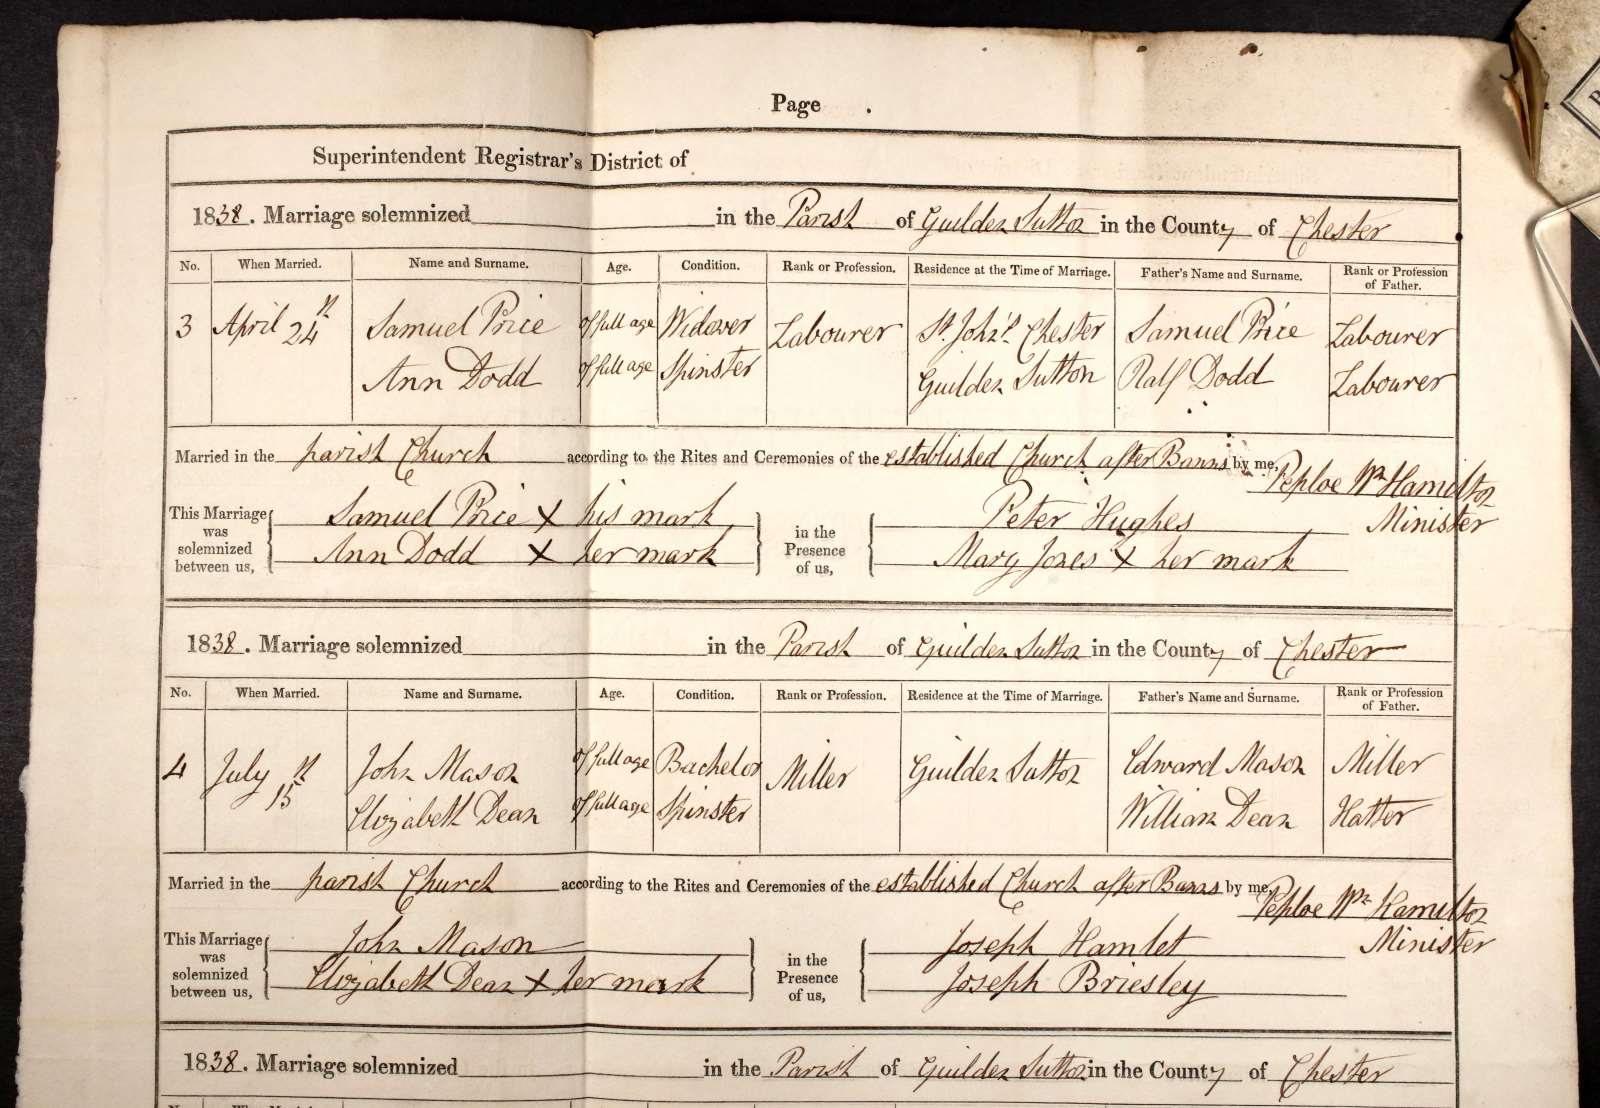 Page .
Superintendent Registrar's District of
1838. Marriage solemnized in the Parish of Guilden Sutton in the County of Chester
No. When Married. Name and Surname. Age. Condition. Rank or Profession. Residence at the Time of Marriage. Father's Name and Surname. Rank or Profession of Father.
3 April 24th Samuel Price of full age Widower Labourer St. John's Chester Samuel Price Labourer
Ann Dodd of full age Spinster Guilden Sutton Ralf Dodd Labourer
Married in the parish Church according to the Rites and Ceremonies of the established Church after Banns by me, Peploe Wm Hamilton
Minister
This Marriage was solemnized between us, Samuel Price x his mark in the Presence of us, Peter Hughes
Ann Dodd x her mark Mary Jones x her mark
1838. Marriage solemnized in the Parish of Guilden Sutton in the County of Chester
No. When Married. Name and Surname. Age. Condition. Rank or Profession. Residence at the Time of Marriage. Father's Name and Surname. Rank or Profession of Father.
4 July 15th John Mason of full age Bachelor Miller Guilden Sutton Edward Mason Miller
Elizabeth Dean of full age Spinster William Dean Hatter
Married in the parish Church according to the Rites and Ceremonies of the established Church after Banns by me, Peploe Wm Hamilton
Minister
This Marriage was solemnized between us, John Mason in the Presence of us, Joseph Hamlet
Elizabeth Dean x her mark Joseph Briesley
1838. Marriage solemnized in the Parish of Guilden Sutton in the County of Chester